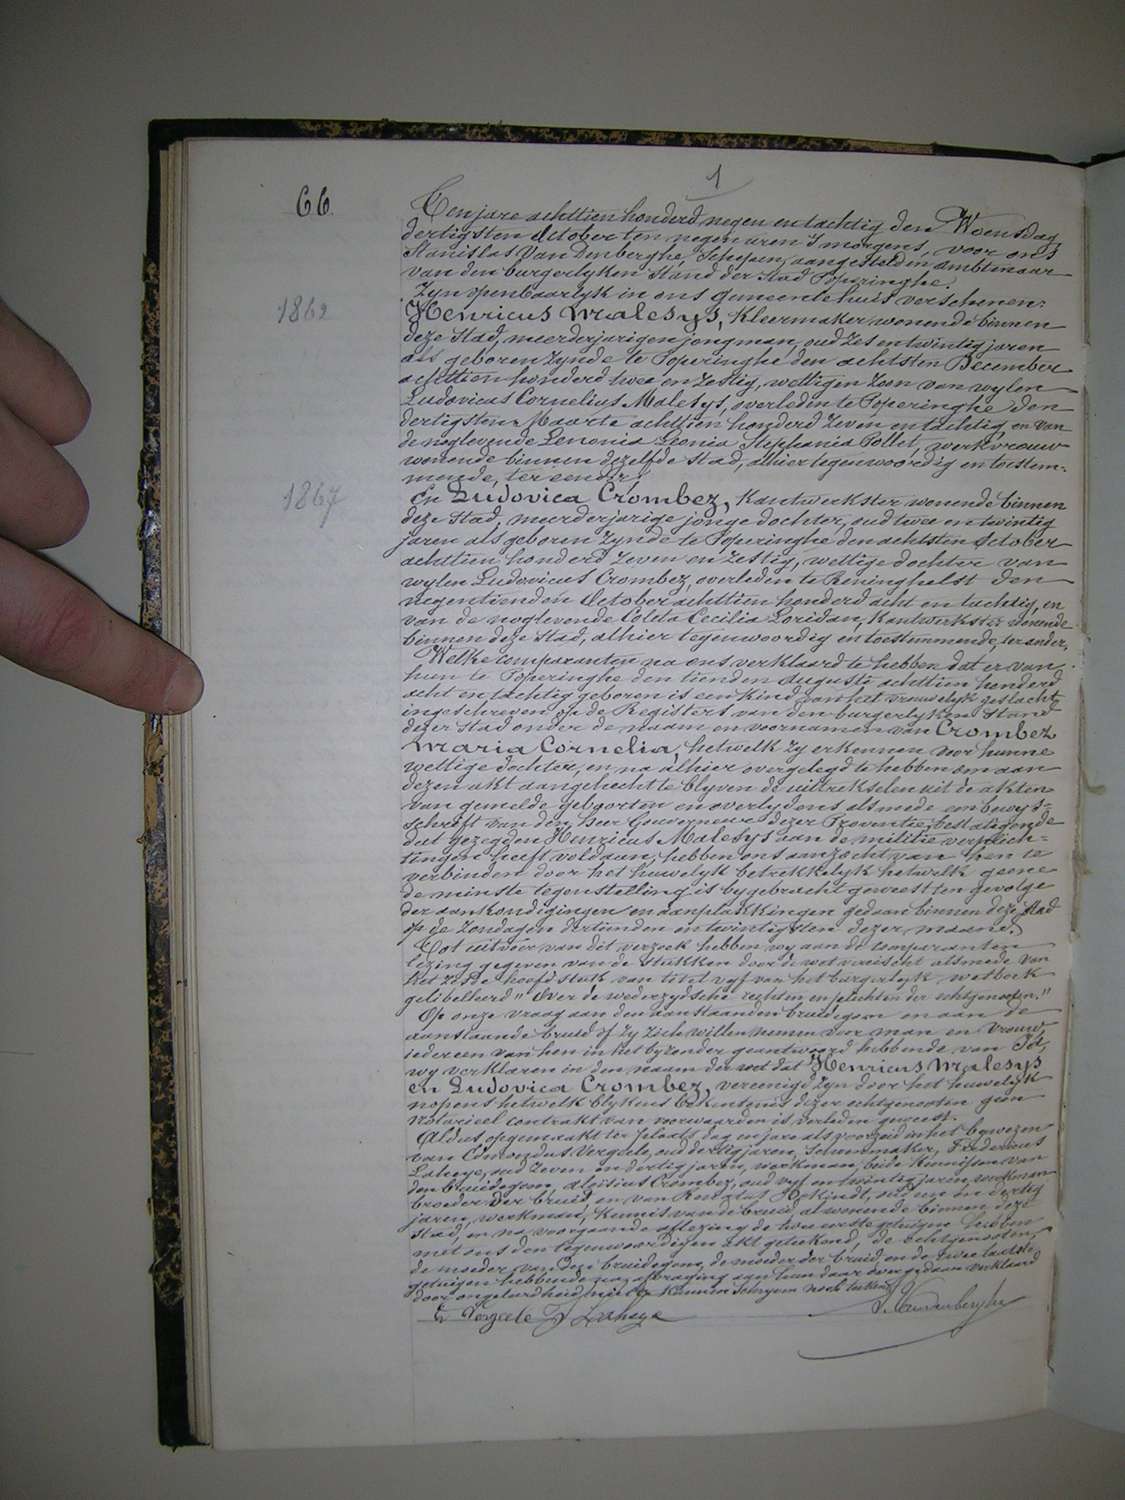 1
66
Ten jare achttien honderd negen en tachtig den Woensdag
dertigsten October ten negen uren 's morgens, voor ons
Stanislas Van Denberghe, Schepen, aangesteld in ambtenaar
van den burgerlyken stand der stad Poperinghe.
Zyn openbaarlyk in ons gemeentehuis verschenen:
1862
Henricus Malesys, Kleermaker, wonende binnen
deze stad, meerderjarigen jongman, oud zes en twintig jaren
als geboren zynde te Poperinghe den achtsten December
achttien honderd twee en zestig, wettigen zoon van wylen
Ludovicus Cornelius Malesys, overleden te Poperinghe den
dertigsten Maarte achttien honderd zeven en tachtig, en van
de noglevende Leonia Stephania Pollet, werkvrouw
wonende binnen dezelfde stad, alhier tegenwoordig en toestem-
mende, ter eender;
1867
En Ludovica Crombez, Kantwerkster wonende binnen
deze stad, meerderjarige jonge dochter, oud twee en twintig
jaren als geboren zynde te Poperinghe den achtsten October
achttien honderd zeven en zestig, wettige dochter van
wylen Ludovicus Crombez, overleden te Reninghelst den
negentienden October achttien honderd acht en tachtig, en
van de noglevende Coleta Cecilia Loridan, Kantwerkster wonende
binnen deze stad, alhier tegenwoordig en toestemmende, ter ander.
Welke comparanten na ons verklaard te hebben dat er van
hun te Poperinghe den tienden Auguste achttien honderd
acht en tachtig geboren is een kind van het vrouwelyk geslacht
ingeschreven op de Registers van den burgerlyken Stand
dezer stad onder de naam en voornamen van Crombez
Maria Cornelia, hetwelk zy erkennen voor hunne
wettige dochter, en na alhier overgelegd te hebben om aan
dezen akt aangehecht te blyven de uittrekselen uit de akten
van gemelde geboorten en overlydens alsmede een bewys-
schrift van den heer Gouverneur dezer Provintie, bestatigende
dat gezegden Henricus Malesys aan de militie verplich-
tingen heeft voldaan, hebben ons aanzocht van hen te
verbinden door het huwelyk betrekkelyk hetwelk geene
de minste tegenstelling is bygebracht geweest ten gevolge
der aankondigingen en aanplakkingen gedaan binnen deze stad
op de zondagen dertienden en twintigsten dezer maand.
Tot uitvoer van dit verzoek hebben wy aan de comparanten
lezing gegeven van de stukken door de wet vereischt alsmede van
het zesde hoofdstuk van titel vyf van het burgerlyk wetboek
gelibelleerd "Over de wederzydsche rechten en plichten der echtgenooten."
Op onze vraag aan den aanstaanden bruidegom en aan de
aanstaande bruid of zy zich willen nemen voor man en vrouw,
iedereen van hen in het byzonder geantwoord hebbende van Ja,
wy verklaren in den naam der wet dat Henricus Malesys
en Ludovica Crombez, vereenigd zyn door het huwelyk
nopens hetwelk blykens bekentenis dezer echtgenooten geen
notarieel contrakt van voorwaarden is verleden geweest.
Aldus opgemaakt ter plaats dag en jare als voorzeid in het bywezen
van Edmondus Vergeele, oud dertig jaren, schoenmaker, Fredericus
Laheye, oud zeven en dertig jaren, werkman, beide Kennissen van
den bruidegom, Aloisius Crombez, oud vyf en twintig jaren, werkman
broeder der bruid en van oud een en dertig
jaren, werkman, Kennis van de bruid, al wonende binnen deze
stad, en na voorgaande aflezing de twee eerste getuigen hebben
met ons den tegenwoordigen akt geteekend, de echtgenooten,
de moeder van den bruidegom, de moeder der bruid en de twee laatste
getuigen hebbende na afvraging aan hun daar over gedaan verklaard
door ongeleerdheid niet te kunnen schryven noch teekenen
E Vergeele F Laheye S. Vandenberghe